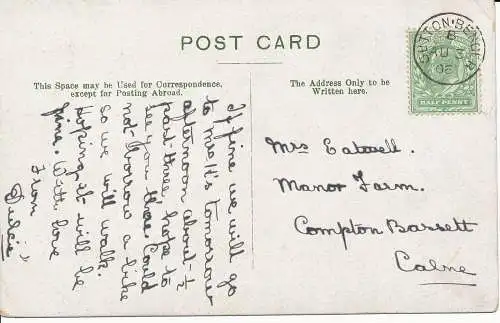 POST CARD
This Space may be Used for Correspondence,
except for Posting Abroad.
The Address Only to be
Written here.
SUTTON·BENGER
HALF PENNY
If fine we will go
to Mrs H's tomorrow
afternoon about ½
past three hope to
see you there. Could
not borrow a bike
so we will walk.
Hoping it will be
fine. With love
From
Dulcie
Mrs Eatwell.
Manor Farm.
Compton Bassett
Calne